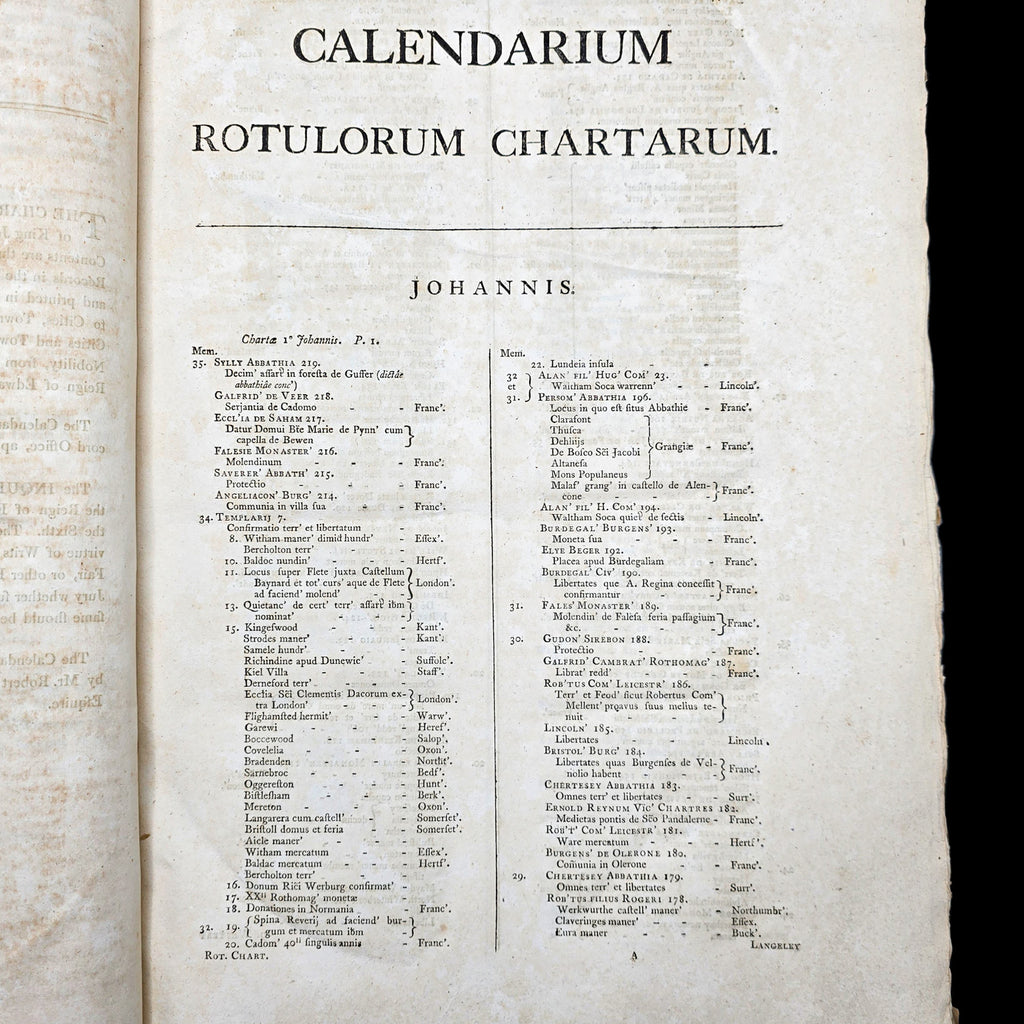 CALENDARIUM
ROTULORUM CHARTARUM.
JOHANNIS.
Chartæ 1º Johannis. P. 1.
Mem.
35. SYLLY ABBATHIA 219.
Decim' assart' in foresta de Guffer (dictæ
abbathiæ conc')
GALFRID' DE VEER 218.
Serjantia de Cadomo - - - Franc'.
ECCL'IA DE SAHAM 217.
Datur Domui Bте Marie de Pynn' cum }
capella de Bewen
FALESIE MONASTER' 216.
Molendinum - - - - Franc'.
SAVERER' ABBATH' 215.
Protectio - - - - Franc'.
ANGELIACON' BURG' 214.
Communia in villa sua - - - Franc'.
34. TEMPLARIJ 7.
Confirmatio terr' et libertatum - -
8. Witham maner' dimid hundr' - - Essex'.
Bercholton terr' - - - -
10. Baldoc nundin' - - - Hertf'.
11. Locus super Flete juxta Castellum }
Baynard et tot' curs' aque de Flete } London'.
ad faciend' molend' - - }
13. Quietanc' de cert' terr' assart' ibm }
nominat' - - - }
15. Kingeswood - - - - Kant'.
Strodes maner' - - - Kant'.
Samele hundr' - - - -
Richindine apud Dunewic' - - Suffolc'.
Kiel Villa - - - - Staff'.
Derneford terr' - - - -
Ecclia Sči Clementis Dacorum ex- } London'.
tra London' - - - }
Flighamsted hermit' - - - Warw'.
Garewi - - - - Heref'.
Boccewood - - - - Salop'.
Covelelia - - - - Oxon'.
Bradenden - - - - Northt'.
Sarnebroc - - - - Bedf'.
Oggereston - - - - Hunt'.
Bistlesham - - - - Berk'.
Mereton - - - - Oxon'.
Langarera cum castell' - - - Somerset'.
Bristoll domus et feria - - - Somerset'.
Aicle maner' - - - -
Witham mercatum - - - Essex'.
Baldac mercatum - - - Hertf'.
Bercholton terr' - - - -
16. Donum Rići Werburg confirmat' -
17. XXli Rothomag' monetæ - -
18. Donationes in Normania - - Franc'.
32. 19. { Spina Reverij ad faciend' bur- }
gum et mercatum ibm - }
20. Cadom' 40li singulis annis - Franc'.
ROT. CHART.
Mem.
22. Lundeia insula - - -
32 } ALAN' FIL' HUG' COM' 23.
et } Waltham Soca warrenn' - - Lincoln'.
31. } PERSOM' ABBATHIA 196.
Locus in quo est situs Abbathie - Franc'.
Clarafont }
Thusca }
Dehliijs }
De Bosco Sči Jacobi } Grangiæ - Franc'.
Altanesa }
Mons Populaneus }
Malas' grang' in castello de Alen- } Franc'.
cone - - - - - }
ALAN' FIL' H. COM' 194.
Waltham Soca quiet' de sectis - Lincoln'.
BURDEGAL' BURGENS' 193.
Moneta sua - - - - Franc'.
ELYE BEGER 192.
Placea apud Burdegaliam - - Franc'.
BURDEGAL' CIV' 190.
Libertates que A. Regina concessit } Franc'.
confirmantur - - - }
31. FALES' MONASTER' 189.
Molendin' de Falesa feria passagium } Franc'.
&c. - - - - - }
30. GUDON' SIREBON 188.
Protectio - - - - Franc'.
GALFRID' CAMBRAT' ROTHOMAG' 187.
Librat' redd' - - - - Franc'.
ROB'TUS COM' LEICESTR' 186.
Terr' et Feod' sicut Robertus Com' }
Mellent' proavus suus melius te- }
nuit - - - - }
LINCOLN' 185.
Libertates - - - - Lincoln.
BRISTOL' BURG' 184.
Libertates quas Burgenses de Vel- } Franc'.
nolio habent - - - }
CHERTESEY ABBATHIA 183.
Omnes terr' et libertates - - Surr'.
ERNOLD REYNUM VIC' CHARTRES 182.
Medietas pontis de Sčo Pandalerne - Franc'.
ROB'T' COM' LEICESTR' 181.
Ware mercatum - - - Hertf'.
BURGENS' DE OLERONE 180.
Com̃unia in Olerone - - - Franc'.
29. CHERTESEY ABBATHIA 179.
Omnes terr' et libertates - - Surr'.
ROB'TUS FILIUS ROGERI 178.
Werkwurthe castell' maner' - - Northumbr'.
Claveringes maner' - - - Essex.
Eura maner - - - - Buck'.
LANGELEY
A